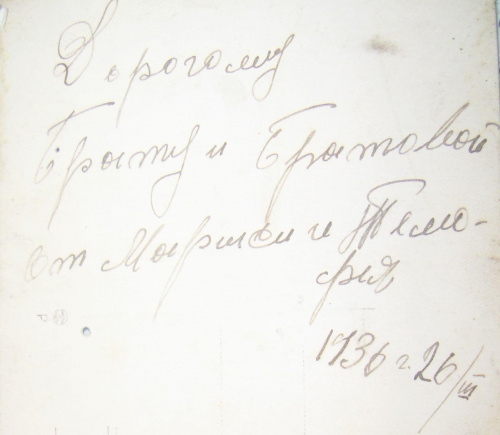 Дорогому
Брату и Братовой
от Мариси и Темо-
фея
1936 г. 26/III